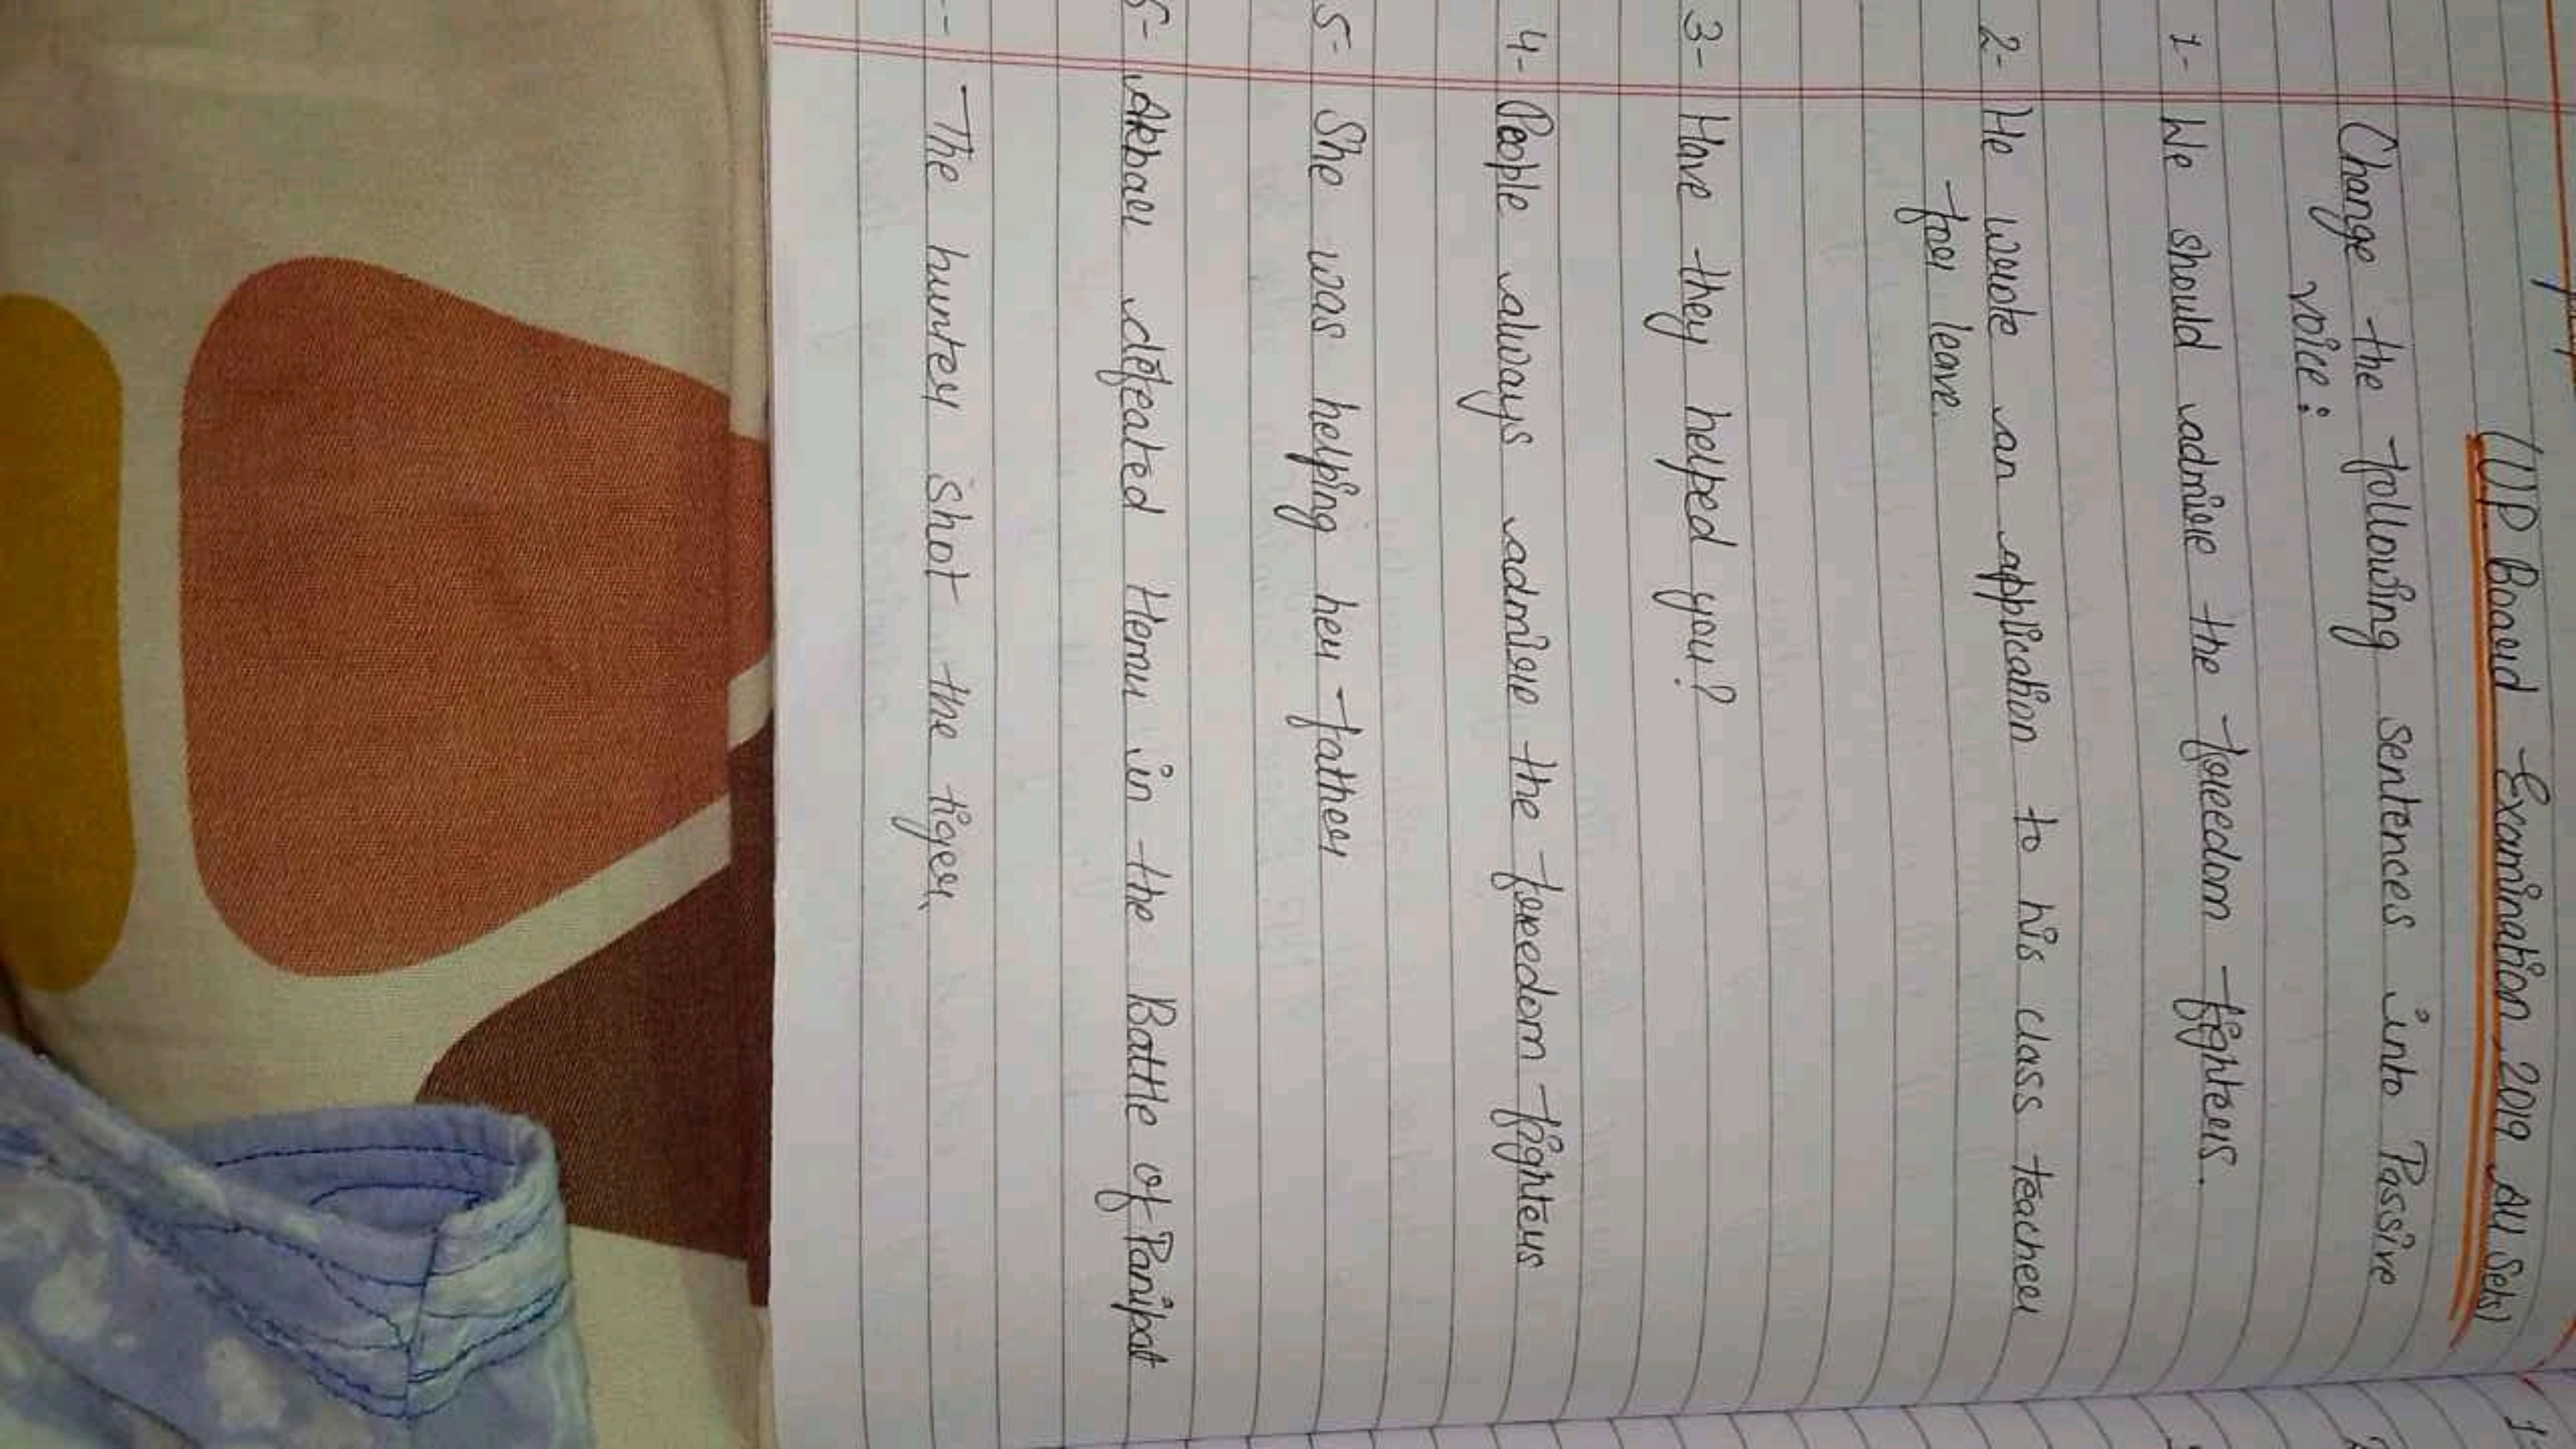 (U.P. Board Examination, 2019 All Sets)
Change the following sentences into Passive
voice:
1- We should admire the freedom fighters.
2- He wrote an application to his class teacher
for leave.
3- Have they helped you?
4- People always admire the freedom fighters
5- She was helping her father
6- Akbar defeated Hemu in the Battle of Panipat
The hunter shot the tiger.